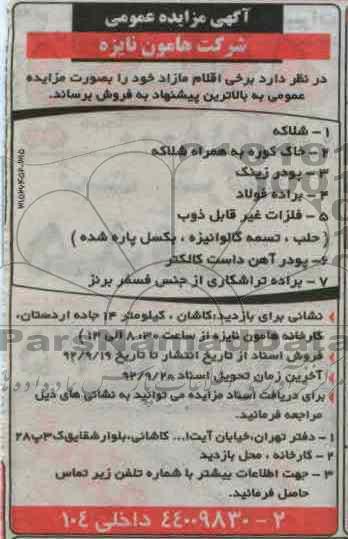 آگهی مزایده عمومی
شرکت هامون نایزه
در نظر دارد برخی اقلام مازاد خود را بصورت مزایده
عمومی به بالاترین پیشنهاد به فروش برساند.
۱ - شلاکه
۲ - خاک کوره به همراه شلاکه
۳ - پودر زینک
۴ - براده فولاد
۵ - فلزات غیر قابل ذوب
( حلب ، تسمه گالوانیزه ، بکسل پاره شده )
۶- پودر آهن داست کالکتر
۷ - براده تراشکاری از جنس فسفر برنز
نشانی برای بازدید:کاشان ، کیلومتر ۱۴ جاده اردستان،
کارخانه هامون نایزه از ساعت ۸:۳۰ الی ۱۴)
فروش اسناد از تاریخ انتشار تا تاریخ ۹۲/۹/۱۹
آخرین زمان تحویل اسناد ۹۲/۹/۲۸
برای دریافت اسناد مزایده می توانید به نشانی های ذیل
مراجعه فرمائید.
۱ - دفتر تهران،خیابان آیت‌ا... کاشانی،بلوارشقایق‌ک۳پ۲۸
۲ - کارخانه ، محل بازدید
۳ - جهت اطلاعات بیشتر با شماره تلفن زیر تماس
حاصل فرمائید.
۲ - ۴۴۰۰۹۸۳۰ داخلی ۱۰۴
ParsNamadData